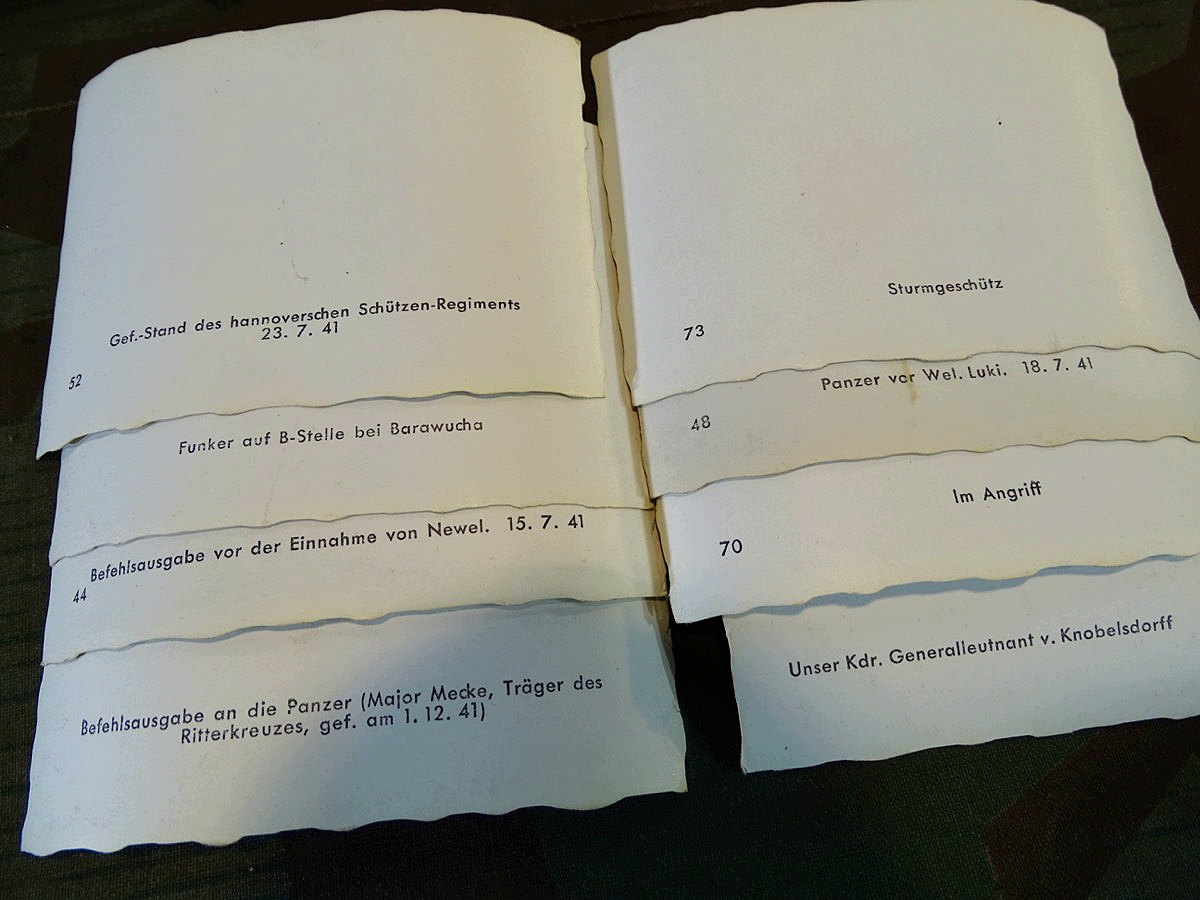 Gef.-Stand des hannoverschen Schützen-Regiments
23. 7. 41
52
Funker auf B-Stelle bei Barawucha
Befehlsausgabe vor der Einnahme von Newel. 15. 7. 41
44
Befehlsausgabe an die Panzer (Major Mecke, Träger des
Ritterkreuzes, gef. am 1. 12. 41)
Sturmgeschütz
73
Panzer vor Wel. Luki. 18. 7. 41
48
Im Angriff
70
Unser Kdr. Generalleutnant v. Knobelsdorff